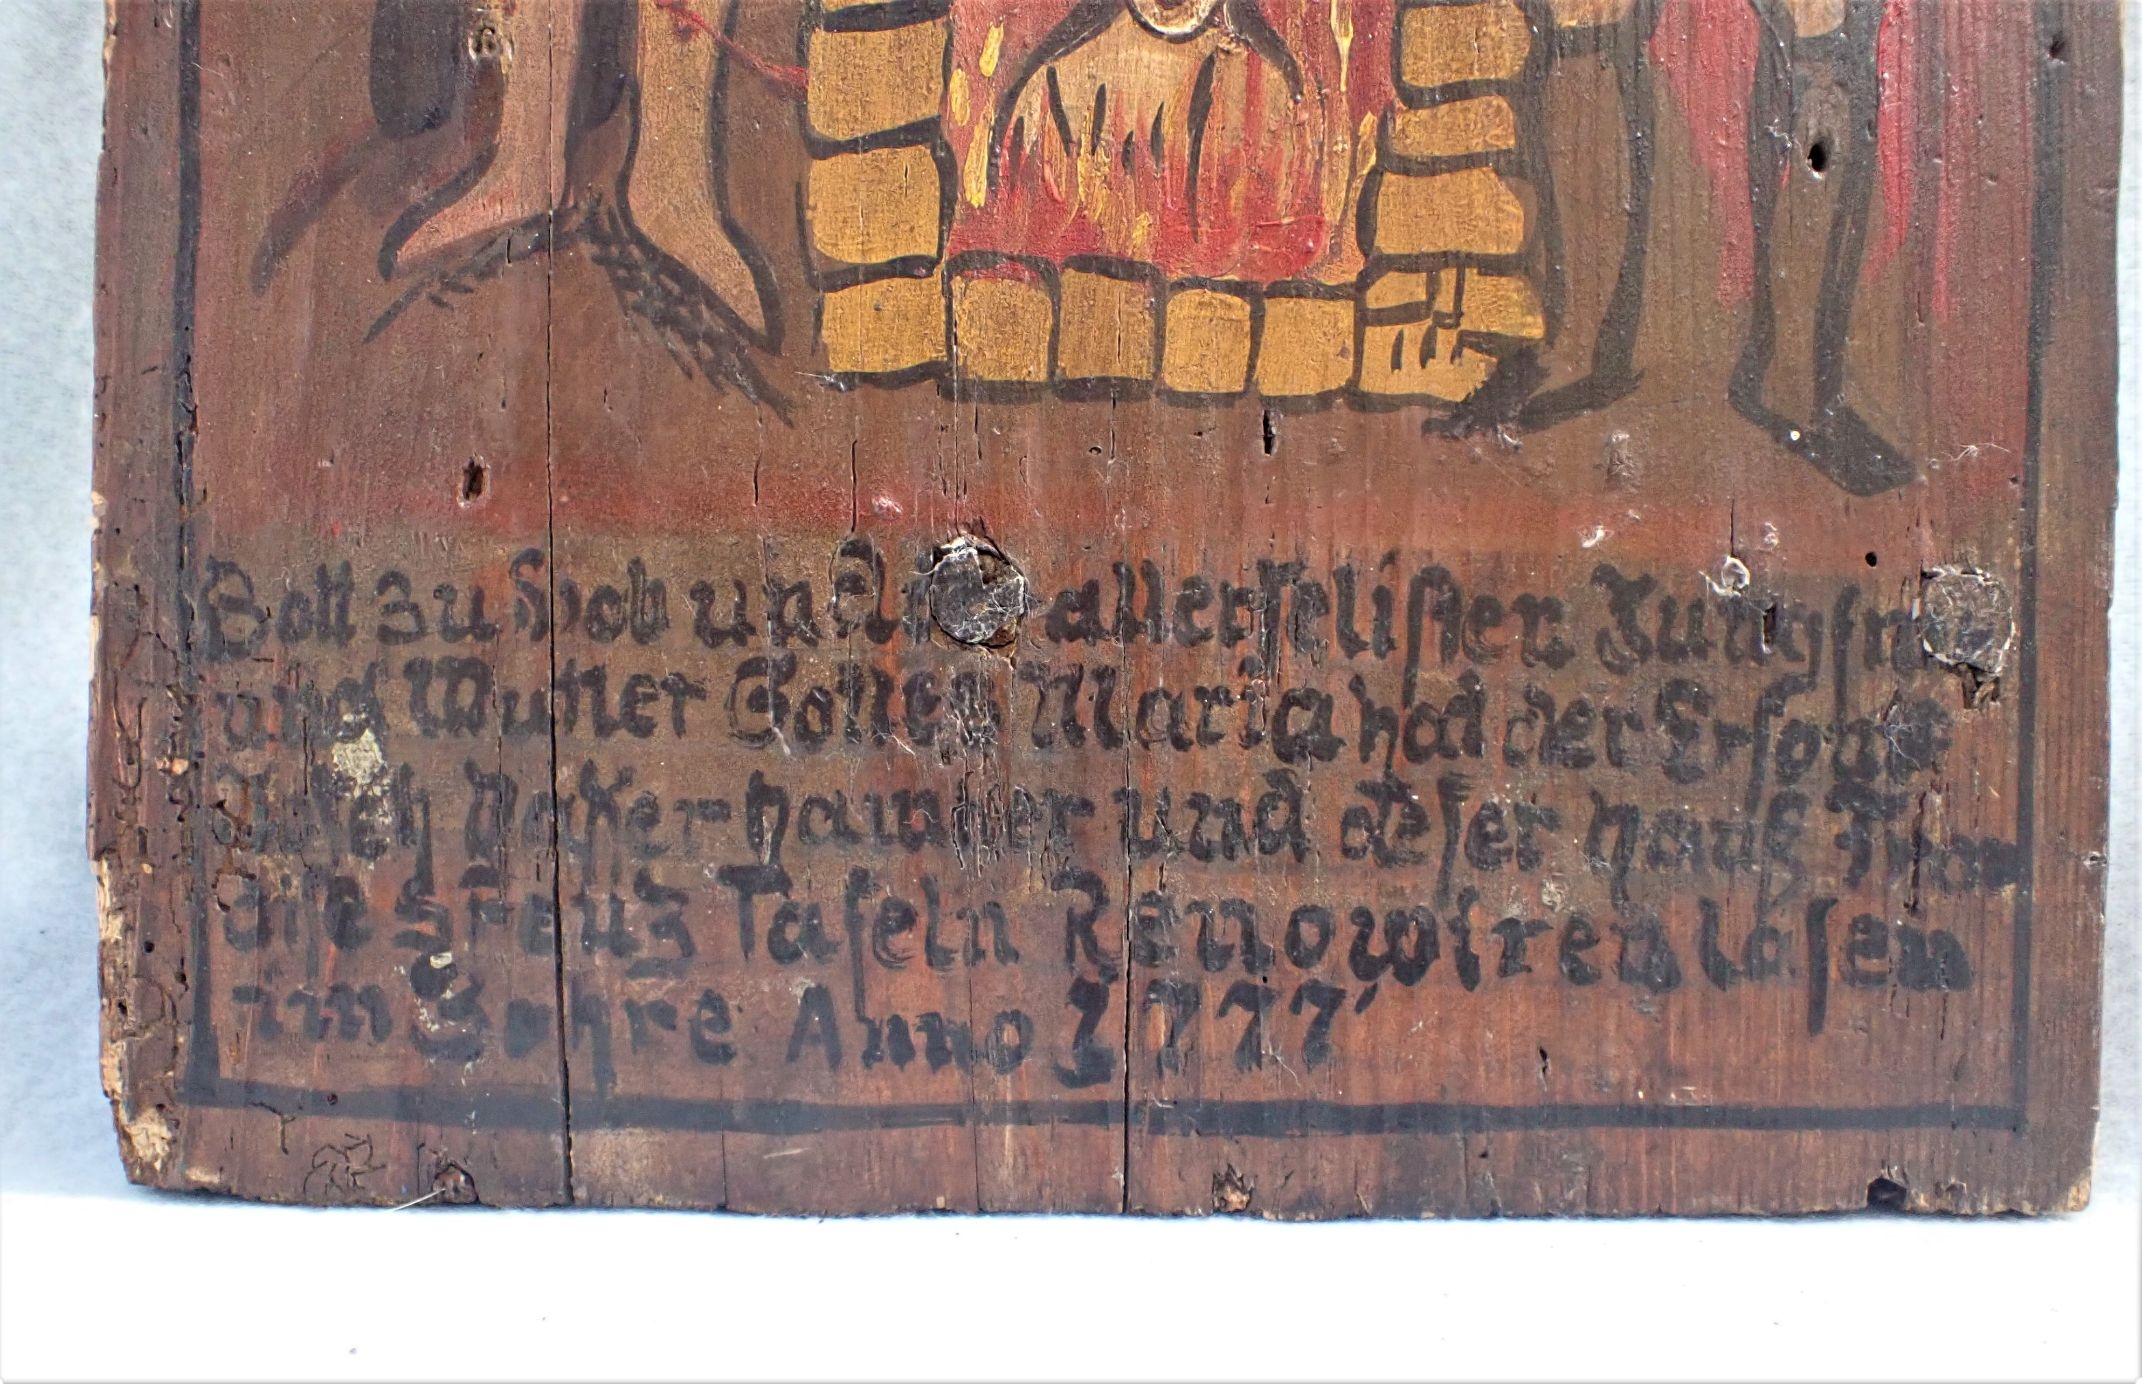 Gott zu Lob und allerseligsten Jungfra
und Mutter Gottes Maria had der Ersame
Joseph hauner und deser hauß Fraw
dise Kreuz Tafeln Renowiren lasen
im Jahre Anno 1777